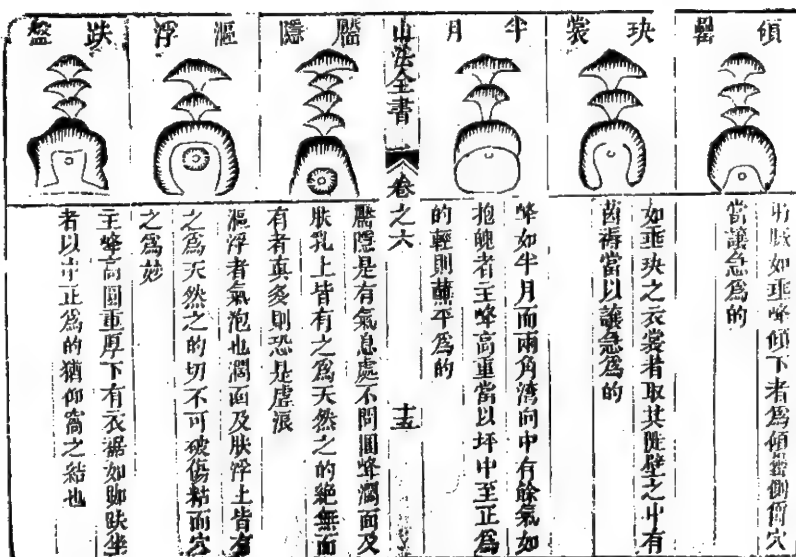 傾
如垂峰傾下者為傾
當讓急為的
玦裳
如垂玦之衣裳者取其陡壁之中有
茵褥當以讓急為的
半月
峰如半月而兩角湾向中有餘氣如
抱魄者主峰高重當以坪中至正為
的輕則蘸平為的
山法全書 卷之六 十五
靨隱
靨隱是有氣息處不問圓峰濶面及
肤乳上皆有之為天然之的絶無而
有者真多則恐是虛浪
漚浮
漚浮者氣泡也濶面及肤浮上皆有
之為天然之的切不可破傷粘而穴
之為妙
趺盤
主峰高圓重厚下有衣裾如脚趺坐
者以中正為的猶仰窩之結也